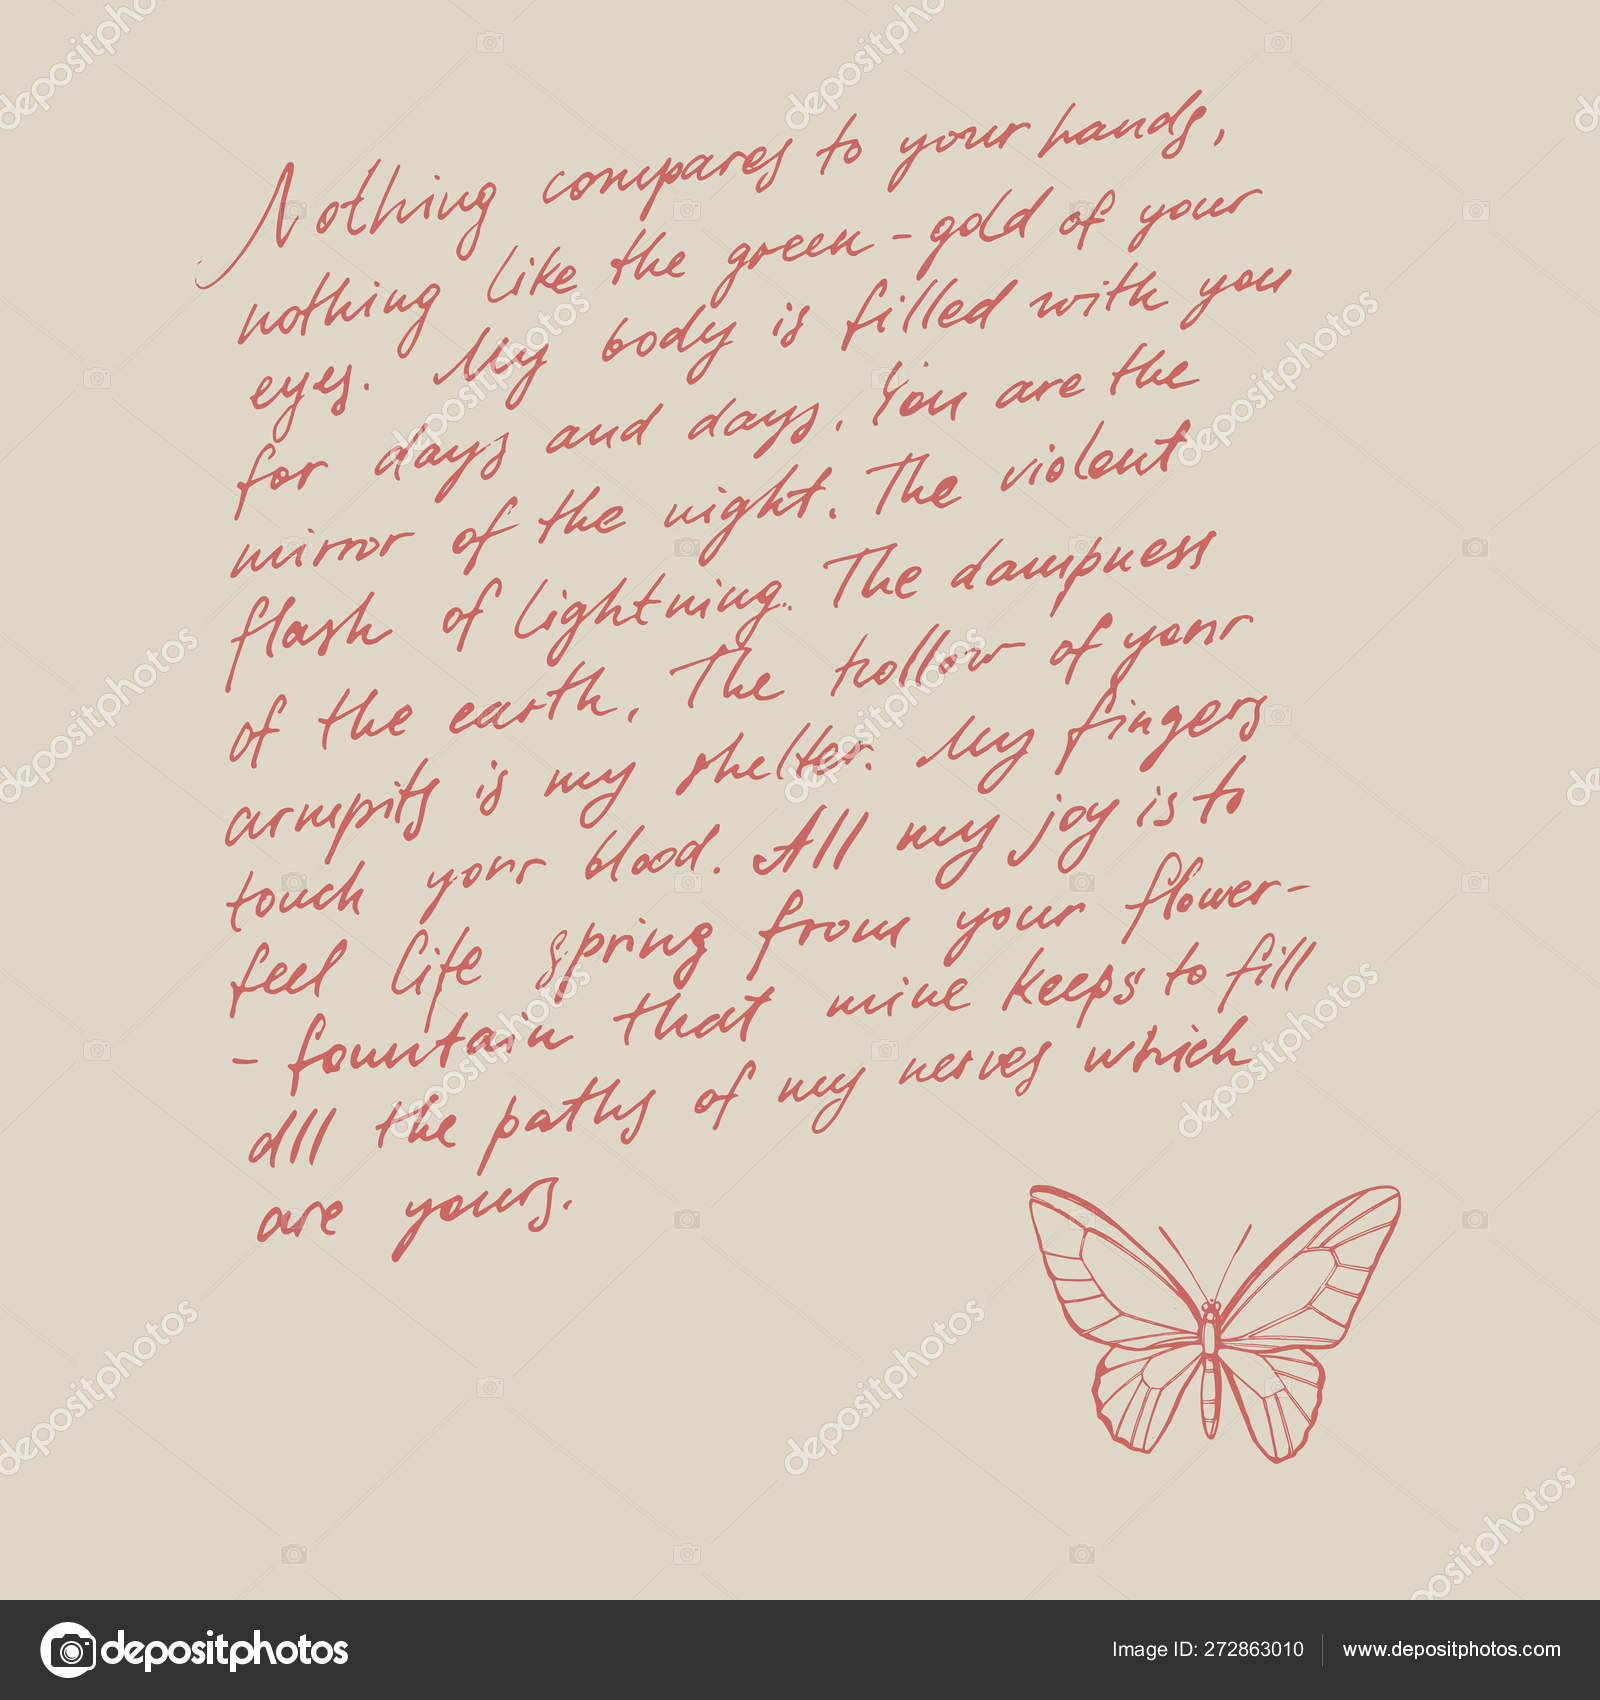 Nothing compares to your hands,
nothing like the green-gold of your
eyes. My body is filled with you
for days and days. You are the
mirror of the night. The violent
flash of lightning. The dampness
of the earth. The hollow of your
armpits is my shelter. My fingers
touch your blood. All my joy is to
feel life spring from your flower-
- fountain that mine keeps to fill
all the paths of my nerves which
are yours.
depositphotos
Image ID: 272863010 www.depositphotos.com